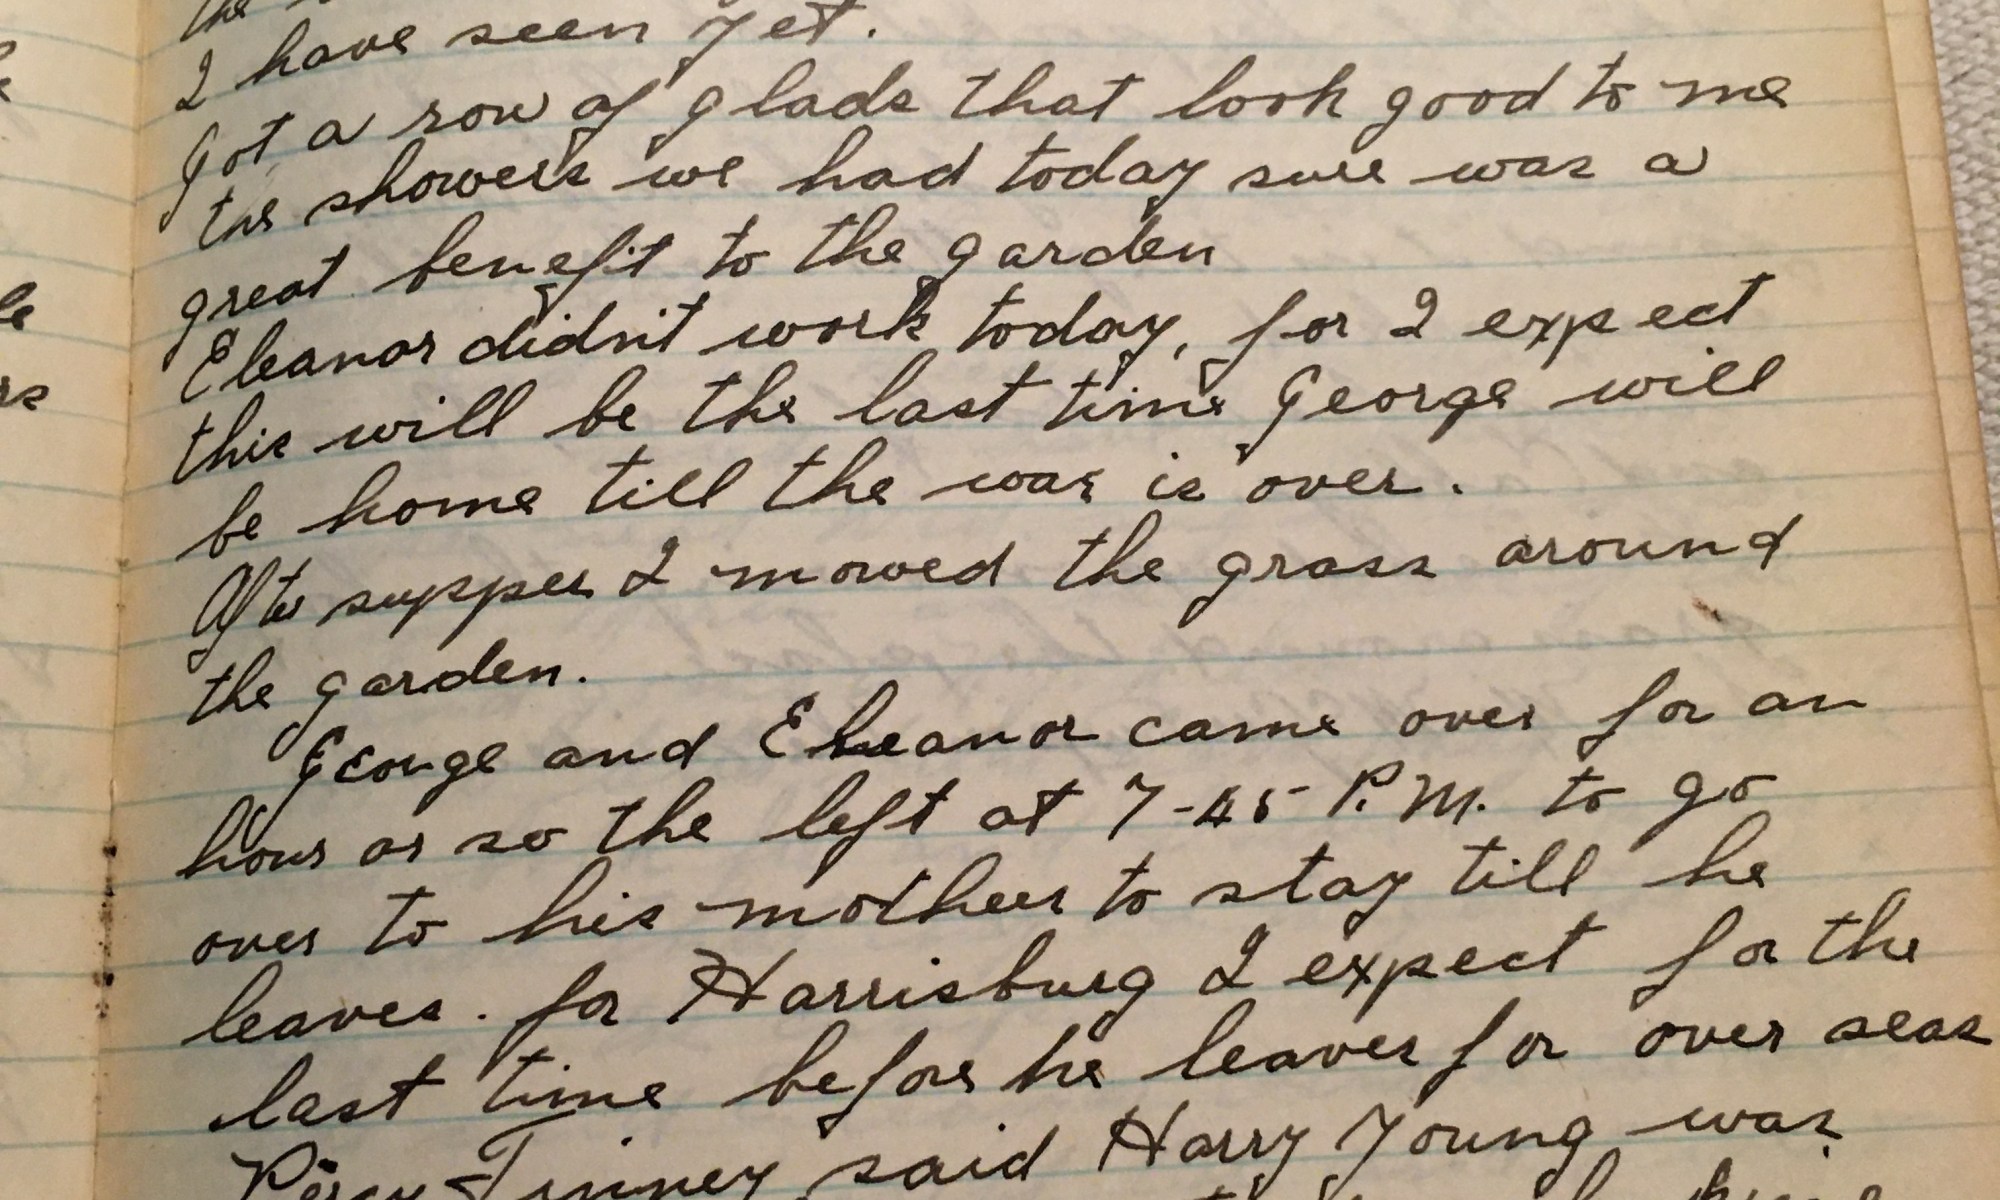 the
I have seen yet.
Got a row of glads that look good to me
the showers we had today sure was a
great benefit to the garden
Eleanor didn't work today, for I expect
this will be the last time George will
be home till the war is over.
After supper I mowed the grass around
the garden.
George and Eleanor came over for an
hour or so the left at 7-45 P.M. to go
over to his mothers to stay till he
leaves. for Harrisburg I expect for the
last time before he leaves for over seas
Percy Tinney said Harry Young was